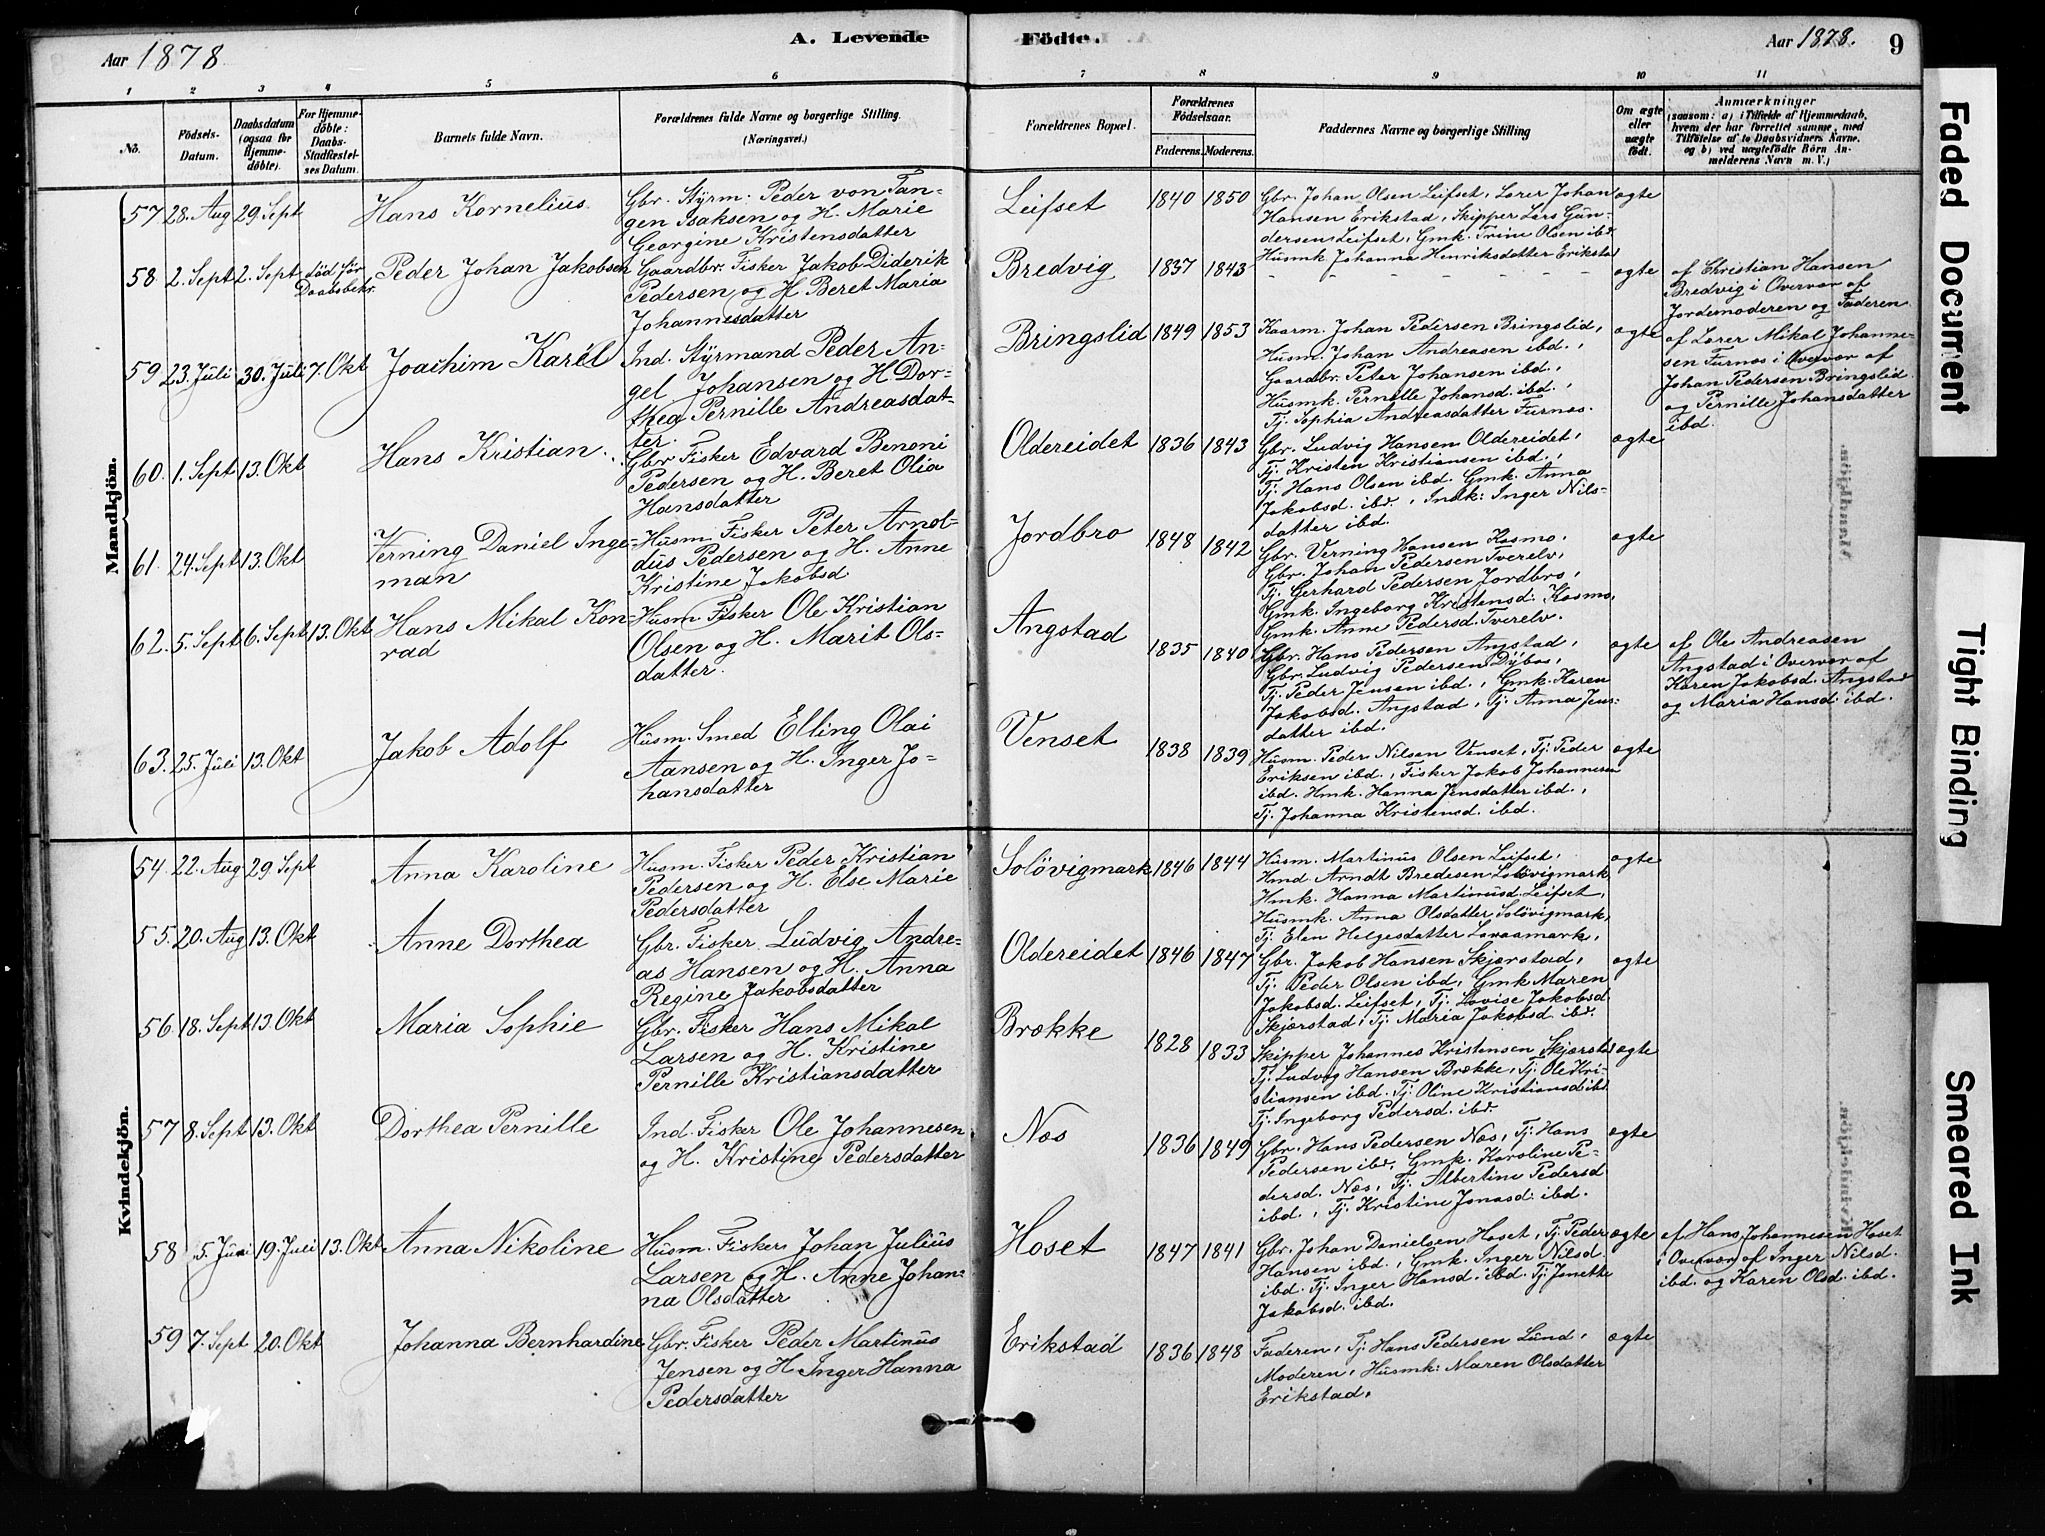 Aar 1878
A. Levende Födte.
Aar 1878.
9
1 2 3 4 5 6 7 8 9 10 11
No.
Födsels-
Datum.
Daabsdatum
(ogsaa for
Hjemme-
döbte).
For Hjemme-
döbte:
Daabs-
Stadfæstel-
ses Datum.
Barnets fulde Navn.
Forældrenes fulde Navne og borgerlige Stilling.
(Næringsvei.)
Forældrenes Bopæl.
Forældrenes
Födselsaar.
Faderens. Moderens.
Faddernes Navne og borgerlige Stilling
Om ægte
eller
uægte
födt.
Anmærkninger
(saasom: a) i Tilfælde af Hjemmedaab,
hvem der har forrettet samme, med
Tilföielse af to Daabsvidners Navne,
og b) ved uægtefödte Börn An-
melderens Navn m. V.)
Mandkjön.
57 28. Aug 29. Sept
Hans Kornelius
Gbr. Styrm. Peder von Tan-
gen Isaksen og H. Marie
Georgine Kristensdatter
Leifset
1840 1850
Gbr. Johan Olsen Leifset, Lærer Johan
Hansen Erikstad, Skipper Lars Gun-
dersen Leifset, Gmk. Trine Olsen ibd.
Husmk Johanna Henriksdatter Erikstad
ægte
58 2. Sept 2. Sept død før
Daabsbekr.
Peder Johan Jakobsen
Gaardbr. Fisker Jakob Diderik
Pedersen og H Beret Maria
Johannesdatter
Bredvig
1837 1843
- - - - - - - -
ægte
af Christian Hansen
Bredvig i Overvær af
Jordemoderen og Faderen
59 23. Juli 30. Juli 7. Okt
Joachim Karél
Ind. Styrmand Peder An-
gel Johansen og H Dor-
thea Pernille Andreasdat-
ter.
Bringslid
1849 1853
Kaarm. Johan Pedersen Bringslid,
Husm. Johan Andreasen ibd.,
Gaardbr. Peter Johansen ibd.,
Husmk. Pernille Johansd. ibd.,
Tj. Sophia Andreasdatter Furnæs.
ægte
af Lærer Mikal Johanne-
sen Furnæs i Overvær af
Johan Pedersen Bringslid
og Pernille Johansdatter
ibd.
60. 1. Sept 13. Okt
Hans Kristian
Gbr Fisker Edvard Benoni
Pedersen og H. Beret Olia
Hansdatter
Oldereidet
1836 1843
Gbr. Ludvig Hansen Oldereidet,
Tj. Kristen Kristiansen ibd.,
Tj. Hans Olsen ibd. Gmk. Anna
Jakobsd. ibd., Indk: Inger Nils-
datter ibd.
ægte
61. 24. Sept 13. Okt
Verning Daniel Inge-
man
Husm. Fisker Peter Arnol-
dus Pedersen og H. Anne
Kristine Jakobsd
Jordbro
1848 1842
Gbr. Verning Hansen Kosmo,
Gbr. Johan Pedersen Tverelv,
Tj. Gerhard Pedersen Jordbro,
Gmk. Ingeborg Kristensd. Kosmo,
Gmk. Anne Pedersd. Tverelv.
ægte
62. 5. Sept 6. Sept 13. Okt
Hans Mikal Kon-
rad
Husm. Fisker Ole Kristian
Olsen og H. Marit Ols-
datter.
Angstad
1835 1840
Gbr. Hans Pedersen Angstad,
Gbr. Ludvig Pedersen Dybos,
Tj. Peder Jensen ibd., Gmk. Karen
Jakobsd. Angstad, Tj. Anna Jens-
datter ibd.
ægte
af Ole Andreasen
Angstad i Overvær af
Karen Jakobsd. Angstad
og Maria Hansd. ibd.
63. 25. Juli 13. Okt
Jakob Adolf
Husm. Smed Elling Olai
Aansen og H. Inger Jo-
hansdatter
Venset
1838 1839
Husm. Peder Nilsen Venset, Tj. Peder
Eriksen ibd., Fisker Jakob Johannesen
ibd. Hmk. Hanna Jensdatter ibd.,
Tj. Johanna Kristensd. ibd.
ægte
Kvindekjön.
54. 22. Aug 29. Sept
Anna Karoline
Husm. Fisker Peder Kristian
Pedersen og H. Else Marie
Pedersdatter
Solövigmark
1846 1844
Husm. Martinus Olsen Leifset,
Hmd Arndt Bredesen Solövigmark
Hmk. Hanna Martinusd. Leifset,
Husmk. Anna Olsdatter Solövigmark,
Tj. Elen Helgesdatter
ægte
55. 20. Aug 13. Okt
Anne Dorthea
Gbr. Fisker Ludvig Andre-
as Hansen og H. Anna
Regine Jakobsdatter
Oldereidet
1846 1847
Gbr. Jakob Hansen Skjærstad,
Tj. Peder Olsen ibd, Gmk Maren
Jakobsd. Leifset, Tj. Lovise Jakobsd.
Skjærstad, Tj. Maria Jakobsd ibd.
ægte
56. 18. Sept 13. Okt
Maria Sophie
Gbr. Fisker Hans Mikal
Larsen og H. Kristine
Pernille Kristiansdatter
Brække
1828 1833
Skipper Johannes Kristensen Skjærstad
Tj. Ludvig Hansen Brække, Tj. Ole Kri-
stiansen ibd. Tj. Oline Kristiansd ibd
Tj. Ingeborg Pedersd. ibd.
ægte
57 8. Sept 13. Okt
Dorthea Pernille
Ind. Fisker Ole Johannesen
og H. Kristine Pedersdatter
Næs
1836 1849
Gbr. Hans Pedersen Næs, Tj. Hans
Pedersen ibd, Gmk. Karoline Pe-
dersd. Næs, Tj. Albertine Pedersd
ibd., Tj. Kristine Jonasd. ibd.
ægte
58 5. Juni 19. Juli 13. Okt
Anna Nikoline
Husm. Fisker Johan Julius
Larsen og H. Anne Johan-
na Olsdatter
Hoset
1847 1841
Gbr. Johan Danielsen Hoset, Tj. Peder
Hansen ibd., Gmk. Inger Nilsd.
ibd. Tj. Inger Hansd. ibd. Tj. Jonette
Jakobsd. ibd.
ægte
af Hans Johannesen Hoset
i Overvær af Inger Nilsd.
ibd. og Karen Olsd. ibd.
59 7. Sept 20. Okt
Johanna Bernhardine
Gbr. Fisker Peder Martinus
Jensen og H. Inger Hanna
Pedersdatter
Erikstad
1836 1848
Faderen, Tj. Hans Pedersen Lund,
Moderen, Husmk: Maren Olsdatter
Erikstad,
ægte
Faded Document
Tight Binding
Smeared Ink